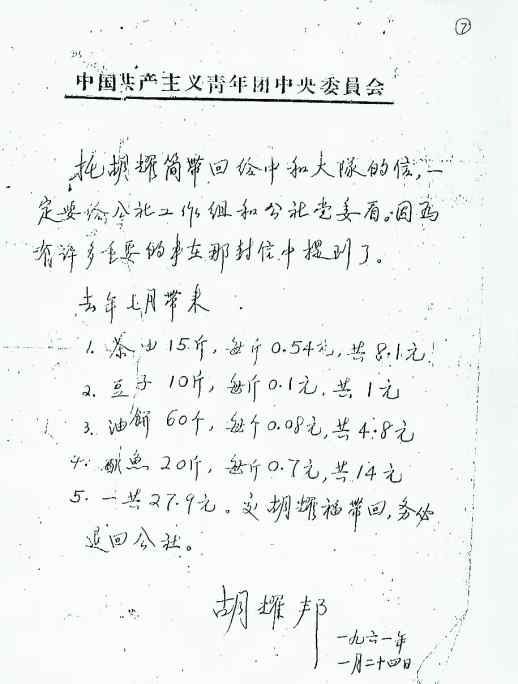 ⑦
中国共产主义青年团中央委員会
托胡耀简带回给中和大隊的信,一
定要给公社工作组和公社党委看。因为
有许多重要的事在那封信中提到了。
去年七月带来
1. 茶油15斤,每斤0.54元,共8.1元
2. 豆子10斤,每斤0.1元,共1元
3. 油餅60个,每个0.08元,共4.8元
4. 魚20斤,每斤0.7元,共14元
5. 一共27.9元。交胡耀福带回,务必
退回公社。
胡耀邦
一九六一年
一月二十四日